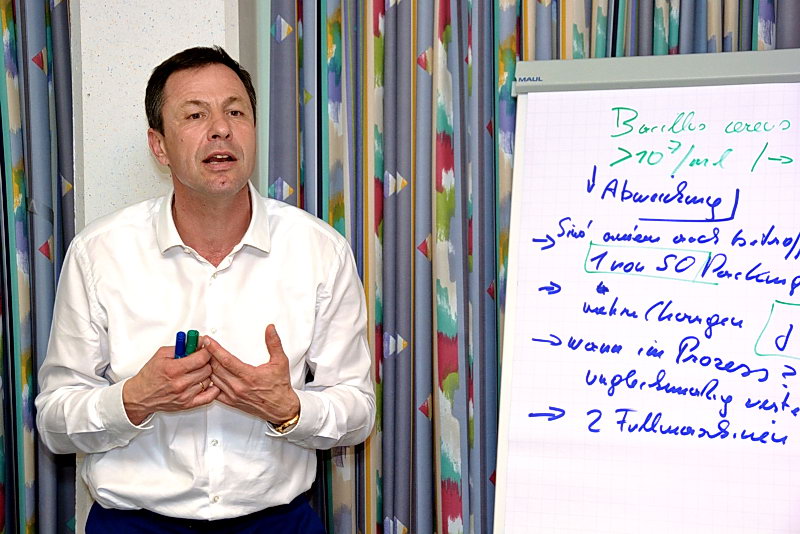 MAUL
Bacillus cereus
>10⁷/ml /→
↓ Abweichung
→ Sind auch
1 von 50 Packung
→ mehre Chargen
→ wann im Prozess?
ungleichmäßig
→ 2 Füllmaschinen